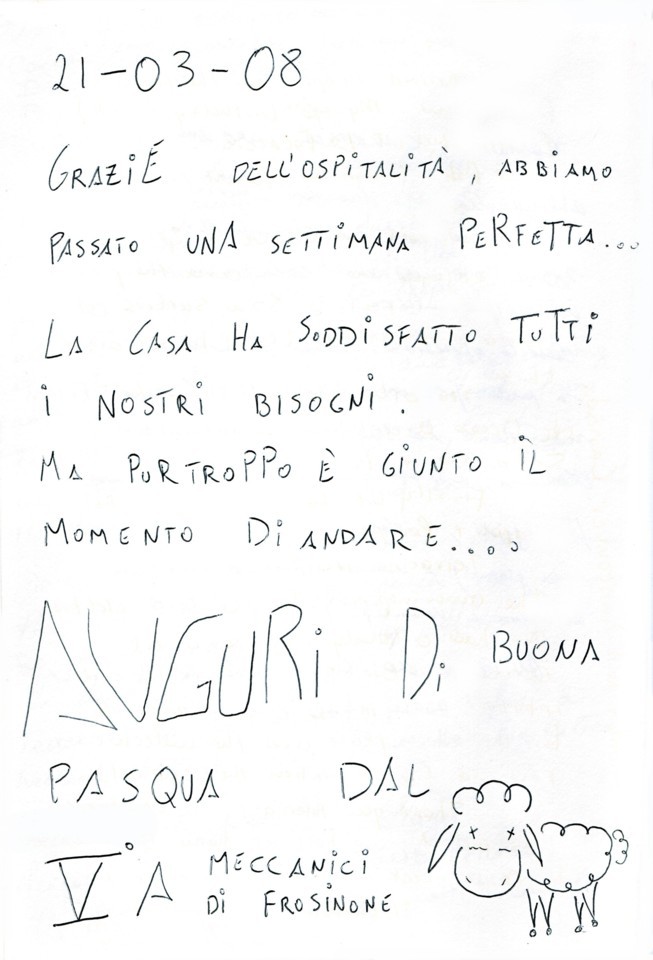 21-03-08
GRAZIE DELL'OSPITALITÀ, ABBIAMO
PASSATO UNA SETTIMANA PERFETTA...
LA CASA HA SODDISFATTO TUTTI
i NOSTRI BISOGNI.
MA PURTROPPO È GIUNTO IL
MOMENTO Di ANDARE....
AUGURi Di BUONA
PASQUA DAL
V°A MECCANiCi
Di FROSINONE